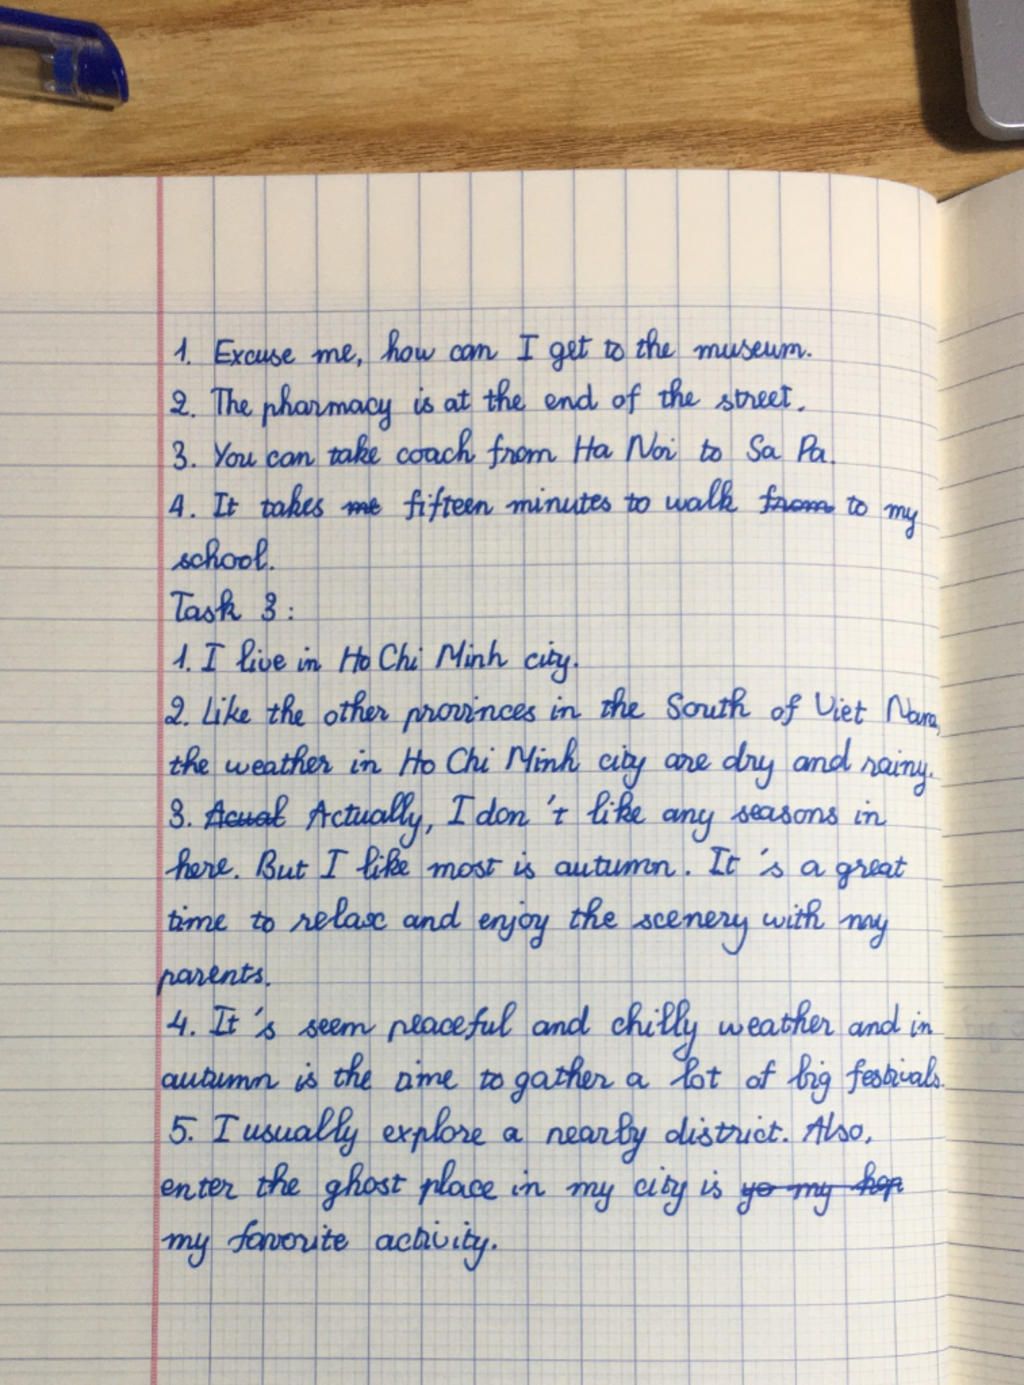 1. Excuse me, how can I get to the museum.
2. The pharmacy is at the end of the street.
3. You can take coach from Ha Noi to Sa Pa.
4. It takes me fifteen minutes to walk from to my
school.
Task 3:
1. I live in Ho Chi Minh city.
2. Like the other provinces in the South of Viet Nam,
the weather in Ho Chi Minh city are dry and rainy.
3. Acual Actually, I don't like any seasons in
here. But I like most is autumn. It's a great
time to relax and enjoy the scenery with my
parents.
4. It's seem peaceful and chilly weather and in
autumn is the time to gather a lot of big festivals.
5. I usually explore a nearby district. Also,
enter the ghost place in my city is yo my hop
my favorite activity.